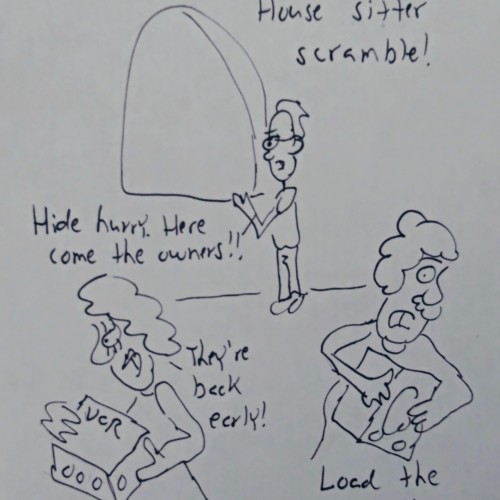 House sitter
scramble!
Hide hurry. Here
come the owners!!
They're
back
early!
VCR
Load the